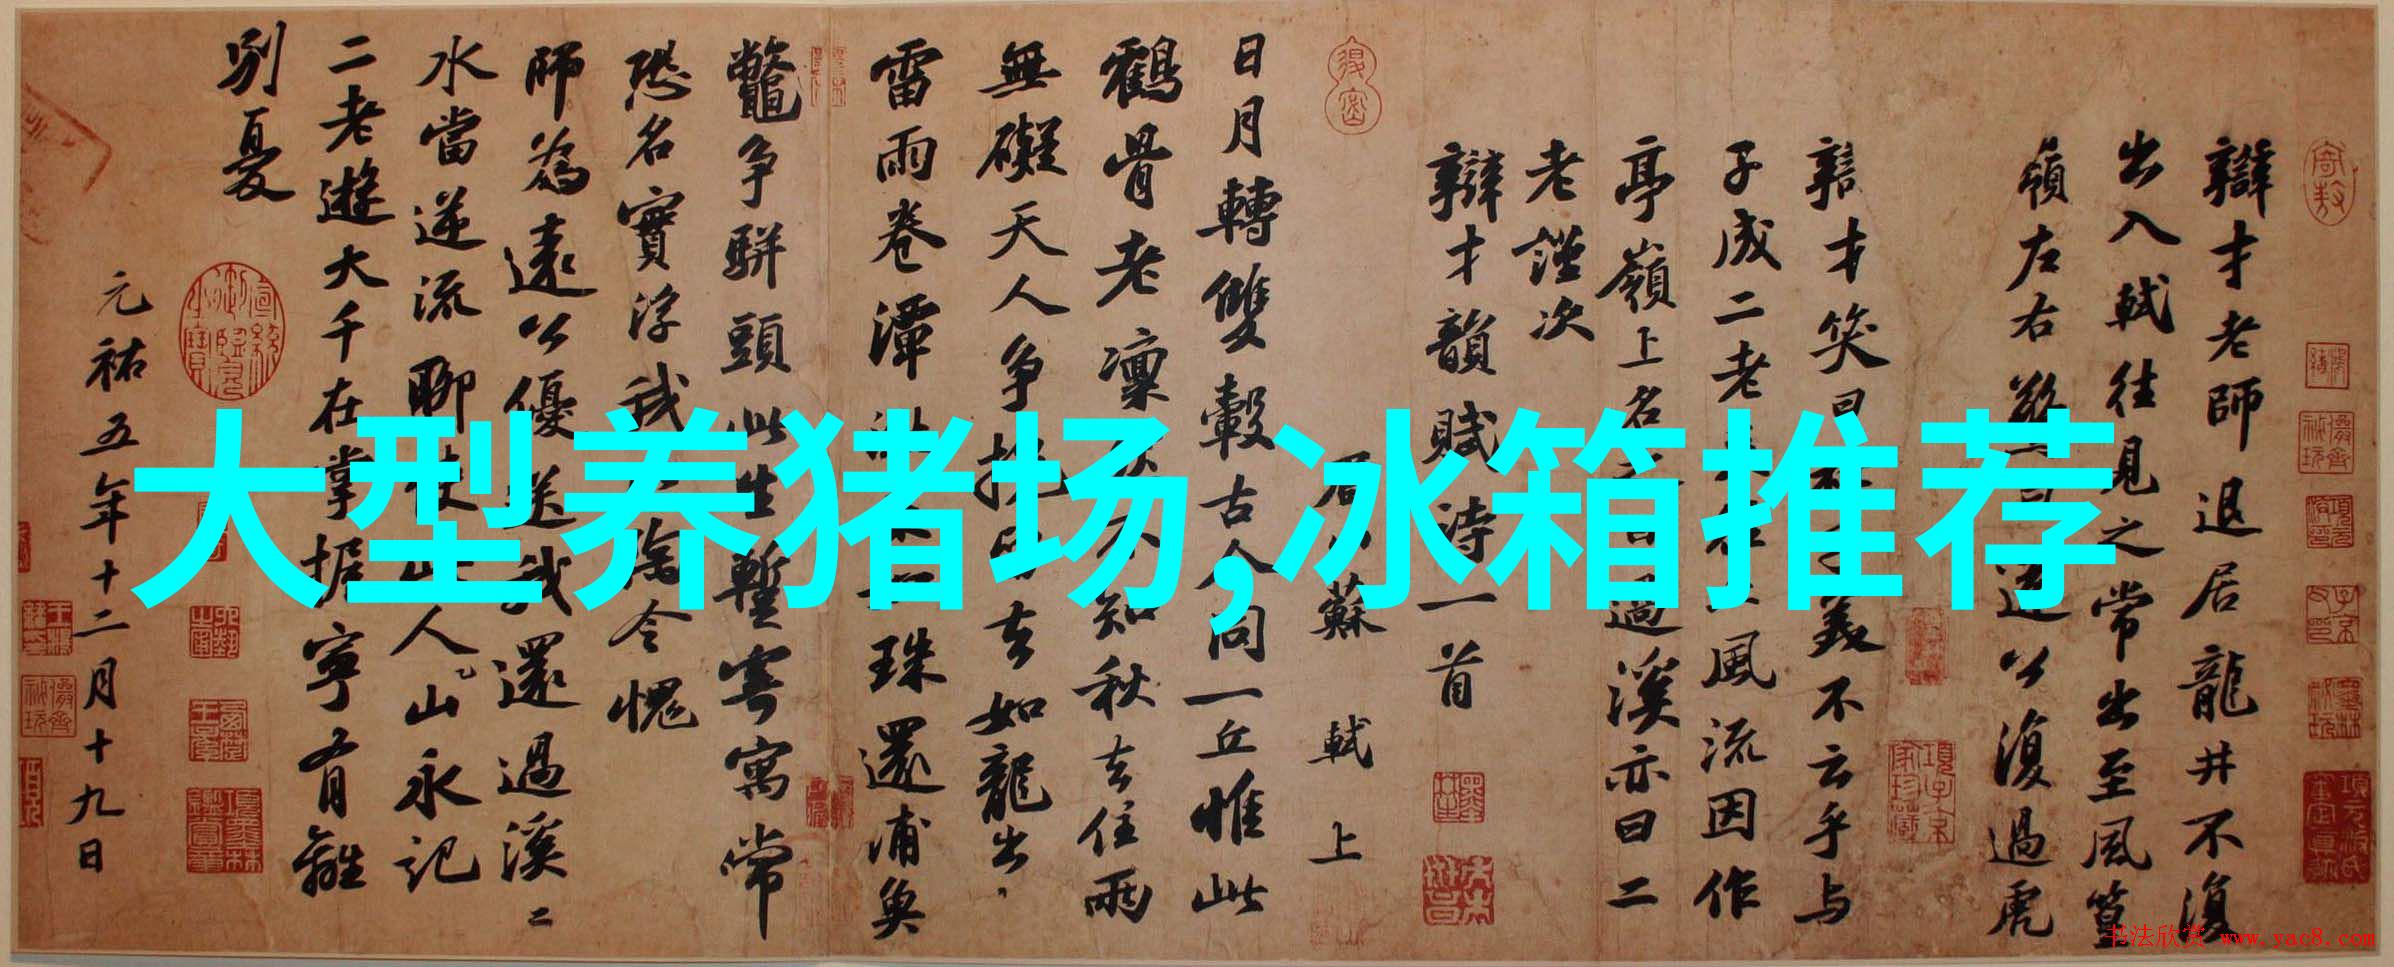 大型养猪场,冰箱推荐
辯才老師退居龍井不復
出入軾往見之常出至風篁
嶺左右公復過虎
辯才笑曰不云乎與
子成二老風流因作
亭嶺上名過溪亦曰二
老謹次
辯才韻賦詩一首
眉山蘇軾上
日月轉雙轂古今同一丘惟此
鶴骨老凜不知秋去住兩
無礙天人爭挽留去如龍出
雷雨卷潭如珠還浦魚
鼈爭駢頭此生暫寄寓常
恐名實浮我陶令愧
師為遠公優送我還過溪〻
水當逆流聊使此人山永記
二老遊大千在掌握寧有離
別憂
元祐五年十二月十九日
书法欣赏 www.yac8.com